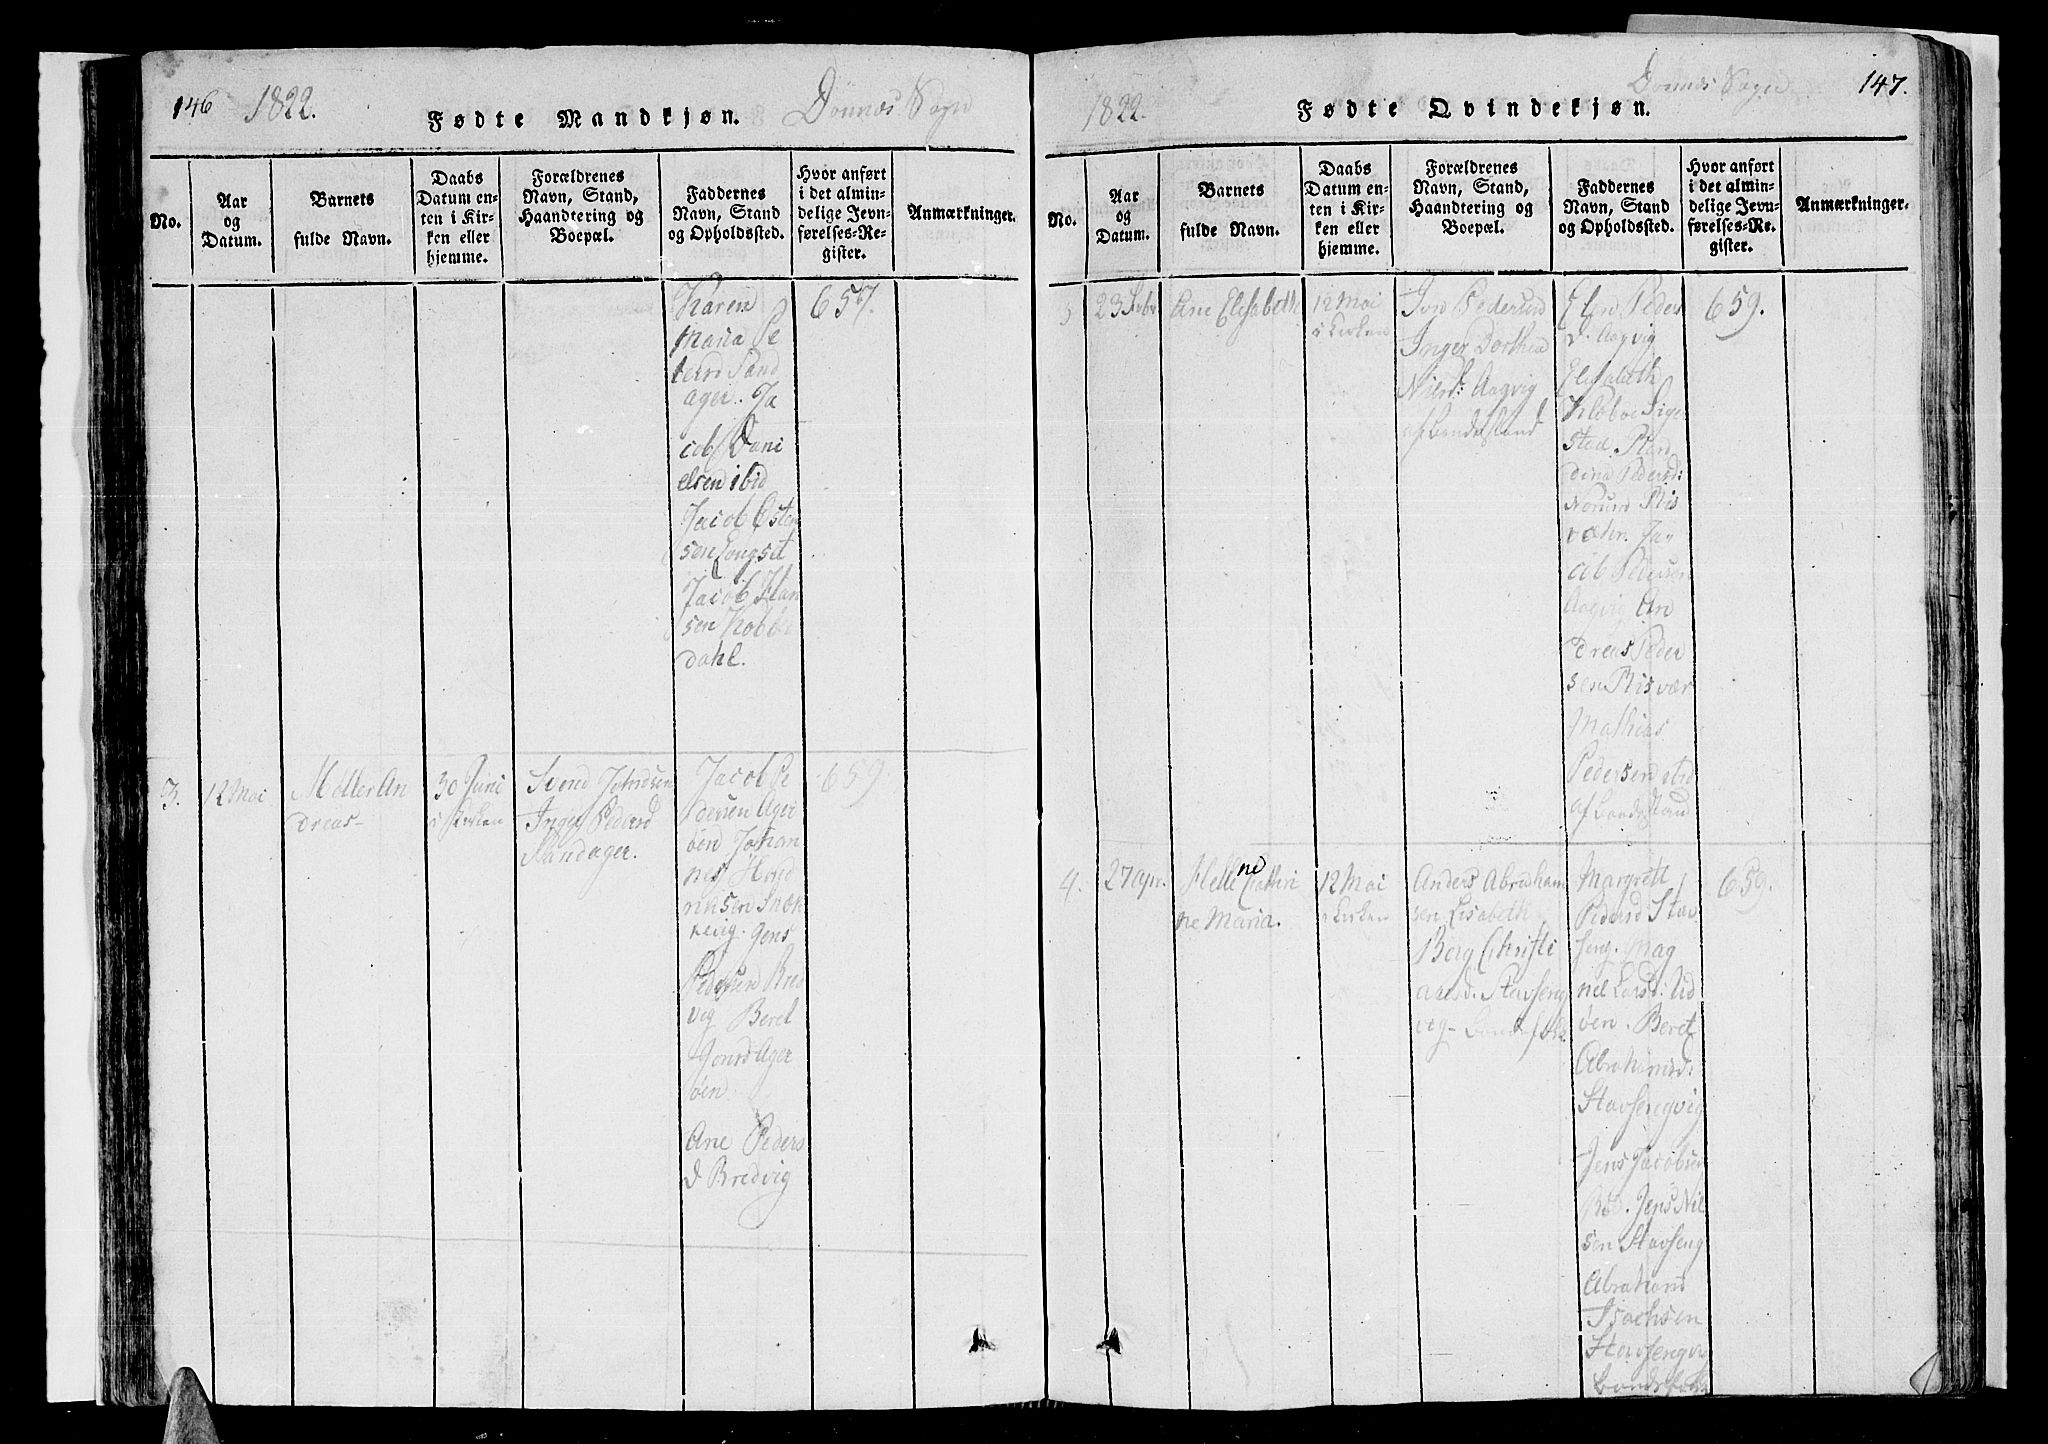 146 1822. Fødte Mandkjøn. Dønnes Sogn
No.
Aar
og
Datum.
Barnets
fulde Navn.
Daabs
Datum en-
ten i Kir-
ken eller
hjemme.
Forældrenes
Navn, Stand,
Haandtering og
Boepæl.
Faddernes
Navn, Stand
og Opholdssted.
Hvor anført
i det almin-
delige Jevn-
førelses-Re-
gister.
Anmærkninger.
Karen
Maria Pe
tersd Sand
ager. Ja
cob Dani
elsen ibid
Jacob Osten
sen Longset
Jacob Han
sen Kobber
dahl.
657.
3.
12 Mai
Møller An
dreas-
30 Juni
i Kirken
Svend Johndsen
Inger Pedersd
Sandager.
Jacob Pe
dersen Ager
øen Johan
nes Hend
riksen Snek
kevig. Jens
Pedersen Bred
vig Beret
Jonsd Ager
øen
Ane Peders
d Bredvig
659.
1822. Fødte Qvindekjøn. Dønnes Sogn 147.
No.
Aar
og
Datum.
Barnets
fulde Navn.
Daabs
Datum en-
ten i Kir-
ken eller
hjemme.
Forældrenes
Navn, Stand,
Haandtering og
Boepæl.
Faddernes
Navn, Stand
og Opholdssted.
Hvor anført
i det almin-
delige Jevn-
førelses-Re-
gister.
Anmærkninger.
3
23 Febr
Ane Elisabeth
12 Mai
i Kirken
Jon Pedersen
Inger Dorthea
Nilsd: Aagvig
af Bondestand
Elen Peders
d. Aagvig
Elisabeth
Sige
sted
dina Pedersd:
Ris
vær. Ja-
cob Pedersen
Aagvig An
dreas Peder
sen Risvær
Mathias
Pedersen ibid
af Bondestand
659.
4.
27 Apr.
Hellene Cathri
ne Maria.
12 Mai
i Kirken
Anders Abraham
sen Lisabeth
Borg Christi
ansd. Stavseng
vig- Bondefolk
Margrett
Pedersd Stav
seng. Mag
nel Larsd: Ud
øen. Beret
Abrahamsd:
Stavsengvig
Jens Jacobsen
Bøe. Jens Nil
sen Stavseng
Abraham
Isachsen
Stavsengvig
Bondefolk
659.